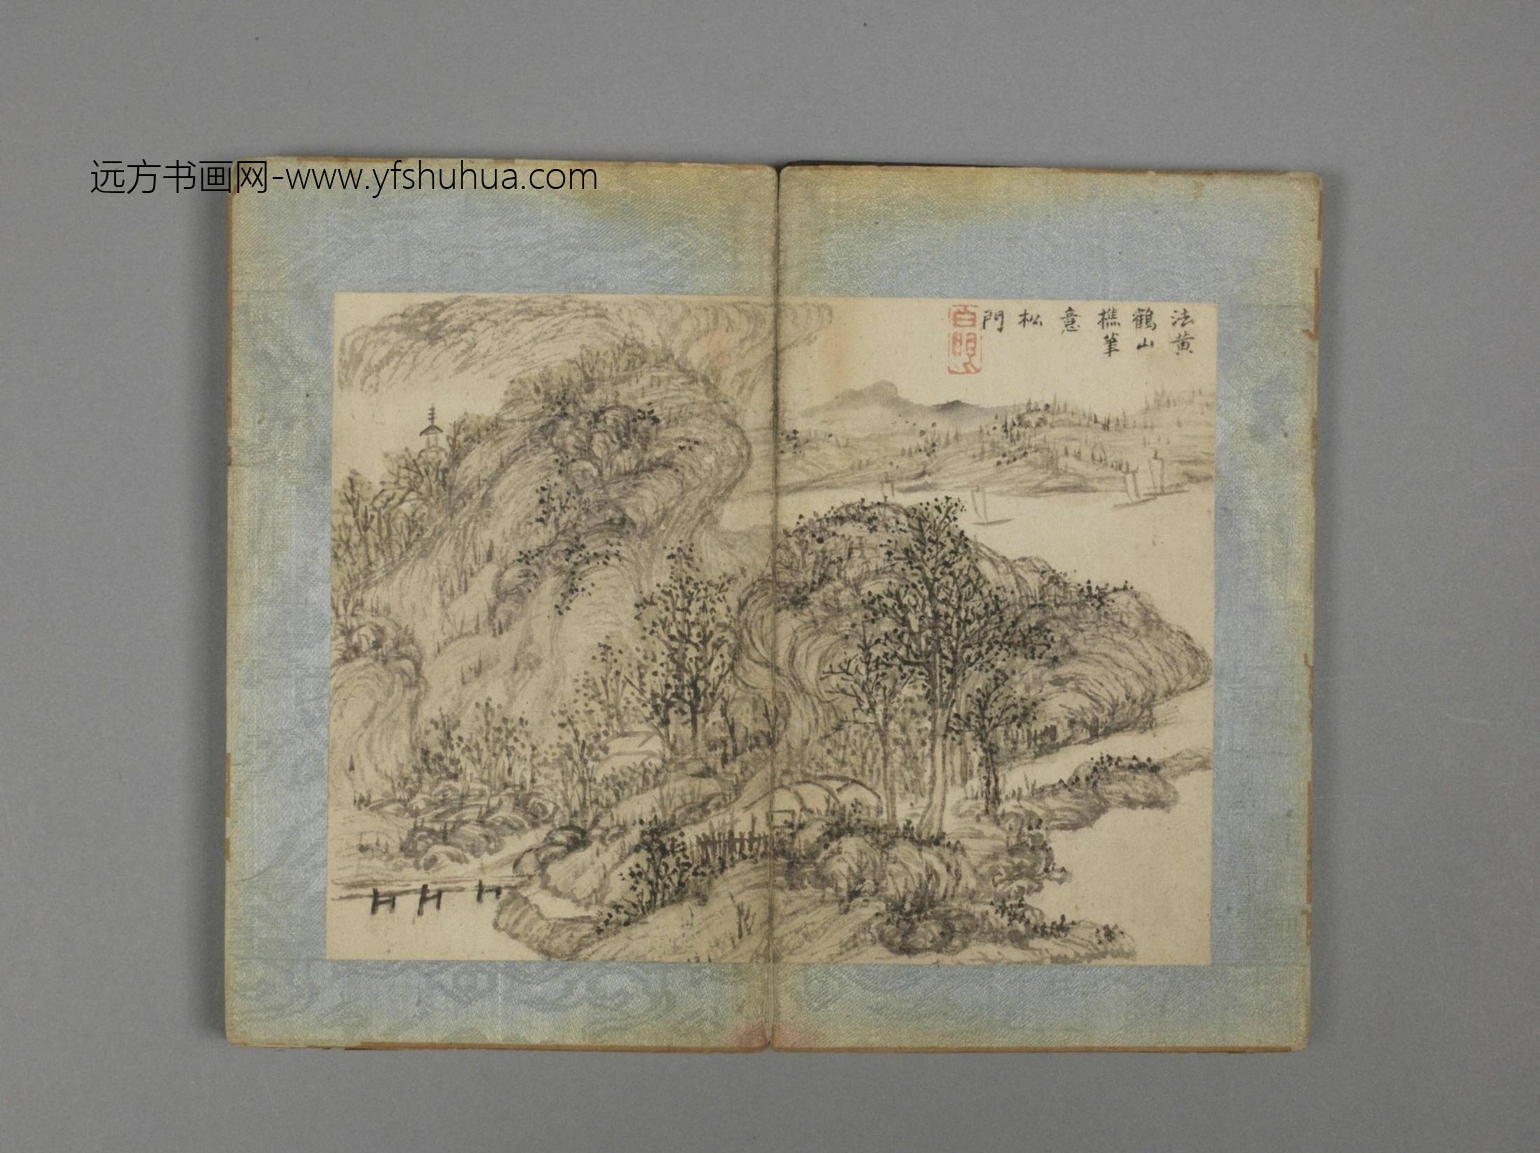 远方书画网-www.yfshuhua.com
法黄
鶴山
樵筆
意
松
門